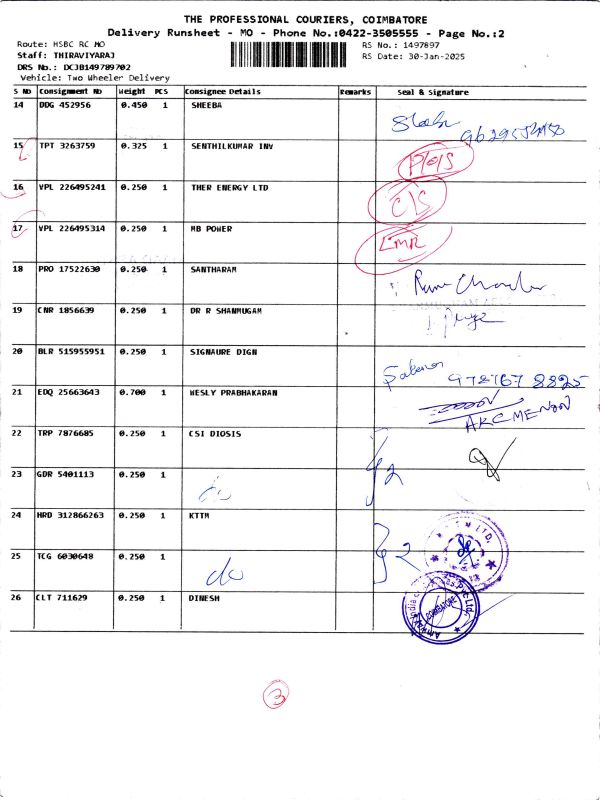 THE PROFESSIONAL COURIERS, COIMBATORE
Delivery Runsheet - MO - Phone No.:0422-3505555 - Page No.:2
Route: HSBC RC MO
RS No.: 1497897
Staff: THIRAVIYARAJ
RS Date: 30-Jan-2025
DRS No.: DCJB149789702
Vehicle: Two Wheeler Delivery
S No Consignment No Weight PCS Consignee Details Remarks Seal & Signature
14 DDG 452956 0.450 1 SHEEBA
15 TPT 3263759 0.325 1 SENTHILKUMAR INV
16 VPL 226495241 0.250 1 THER ENERGY LTD C/S
17 VPL 226495314 0.250 1 MB POWER
18 PRO 17522630 0.250 1 SANTHARAM
19 CNR 1856639 0.250 1 DR R SHANMUGAM
20 BLR 515955951 0.250 1 SIGNAURE DIGN
21 EDQ 25663643 0.700 1 WESLY PRABHAKARAN
22 TRP 7876685 0.250 1 CSI DIOSIS
23 GDR 5401113 0.250 1 do
24 HRD 312866263 0.250 1 KTTM
25 TCG 6030648 0.250 1 do
26 CLT 711629 0.250 1 DINESH
COIMBATORE
3